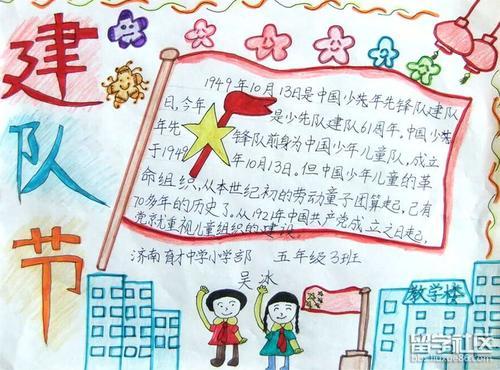 建队节
1949年10月13日是中国少先年先锋队建队
日,今年是少先队建队61周年,中国少
年先锋队前身为中国少年儿童队,成立
于1949年10月13日。但中国少年儿童的革
命组织,从本世纪初的劳动童子团算起,已有
70多年的历史了。从1921年中国共产党成立之日起,
党就重视儿童组织的建设。
济南育才中学小学部 五年级3班
吴冰
教学楼
留学社区